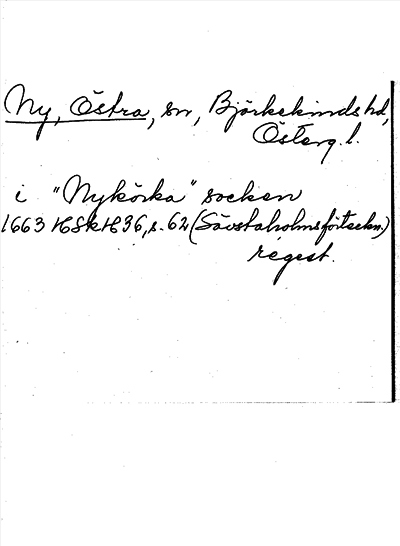 Ny, Östra, sn, Björkekinds hd,
Österg. l.
i "Nykörka" socken
1663 HSkH 36, s. 62 (Sävstaholmsförteckn.)
regest.